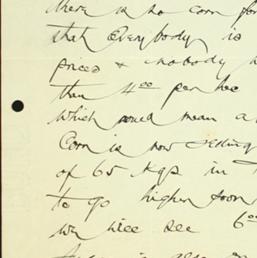 there is no corn for
that everybody is
prices & nobody
than 4.00 per hec
which would mean a
Corn is now selling
of 65 Kgs in
to go higher soon
we will see 6.00